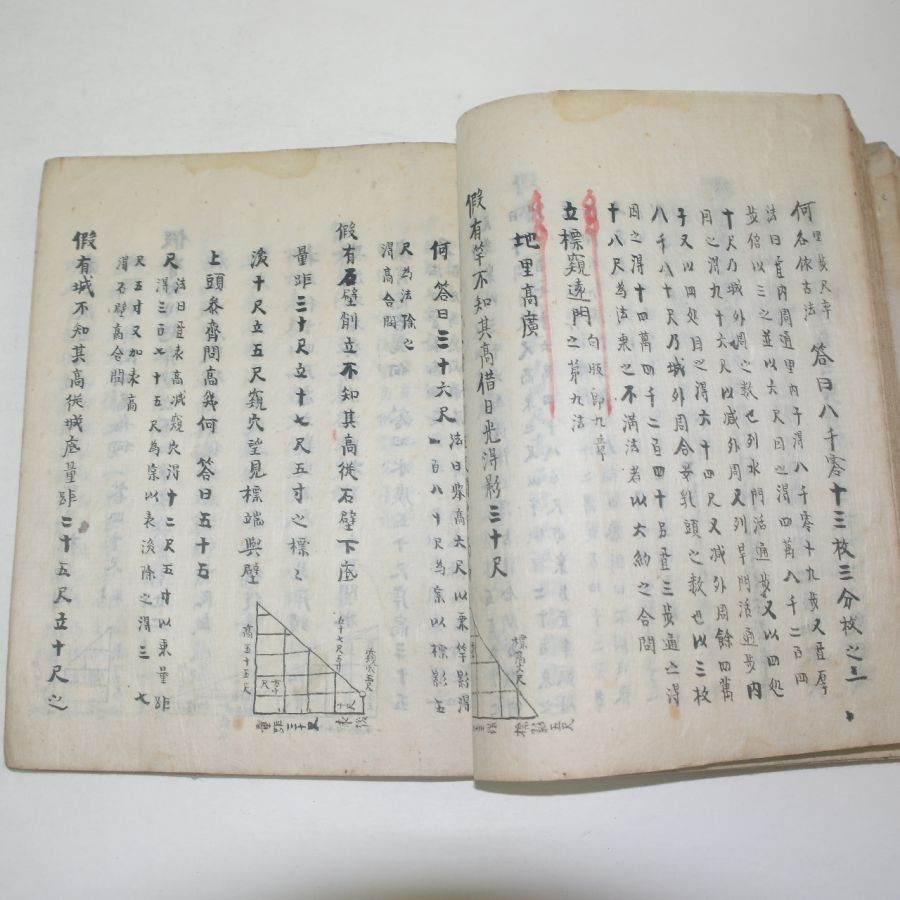 何里步尺率各依古法 答曰八千零十三枚三分枚之二
法曰置內周通里內子得八千零十九步又置厚
步倍以三之並以六尺因之得四萬八千二百四
十尺乃城外周之數也列水門活通步又以四處
因之得九十六尺以減外周又列旱門活通步內
子又以四處因之得六十四尺又減外周餘四萬
八千八十尺乃城外周合番乳頭之數也以三枚
因之得十四萬四千二百四十為置三步通之得
十八尺為法乘之不滿法者以大約之合問
立標窺遠門 之第九法
地里高廣
假有竿不知其高借日光得影三十尺
何 答曰三十六尺 法曰柴高六尺以乘竿影得
一百八十尺為案以標影五
尺為法除之
得高合問
假有石壁削立不知其高從石壁下底
量距三十尺立十七尺五寸之標
後十尺立五尺窺穴望見標端與壁
上頭泰齊問高幾何 答曰五十五
尺 法曰置表高減窺穴得十二尺五寸以乘量距
得三百七十五尺為案以表後除之得三七
尺五寸又加表高
得石壁高合問
假有城不知其高從城底量距二十五尺立十尺之
高五十五尺
量距三十尺
標影五尺